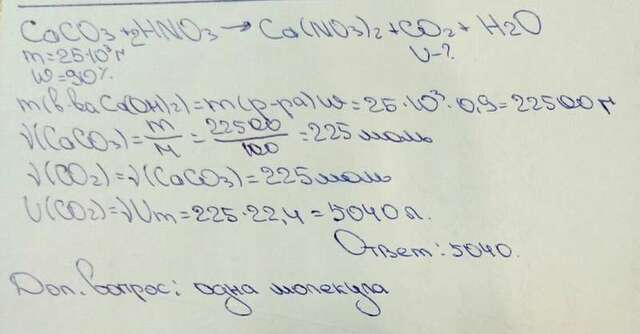 CaCO3+2HNO3→Ca(NO3)2+CO2+H2O
m=25·10³г
V-?
W=90%
m(в-ва Ca(OH)2)=m(р-ра)W=25·10³·0,9=22500г
ν(CaCO3)=m/M=22500/100=225моль
ν(CO2)=ν(CaCO3)=225моль
V(CO2)=νVm=225·22,4=5040л.
Ответ: 5040.
Доп. вопрос: одна молекула